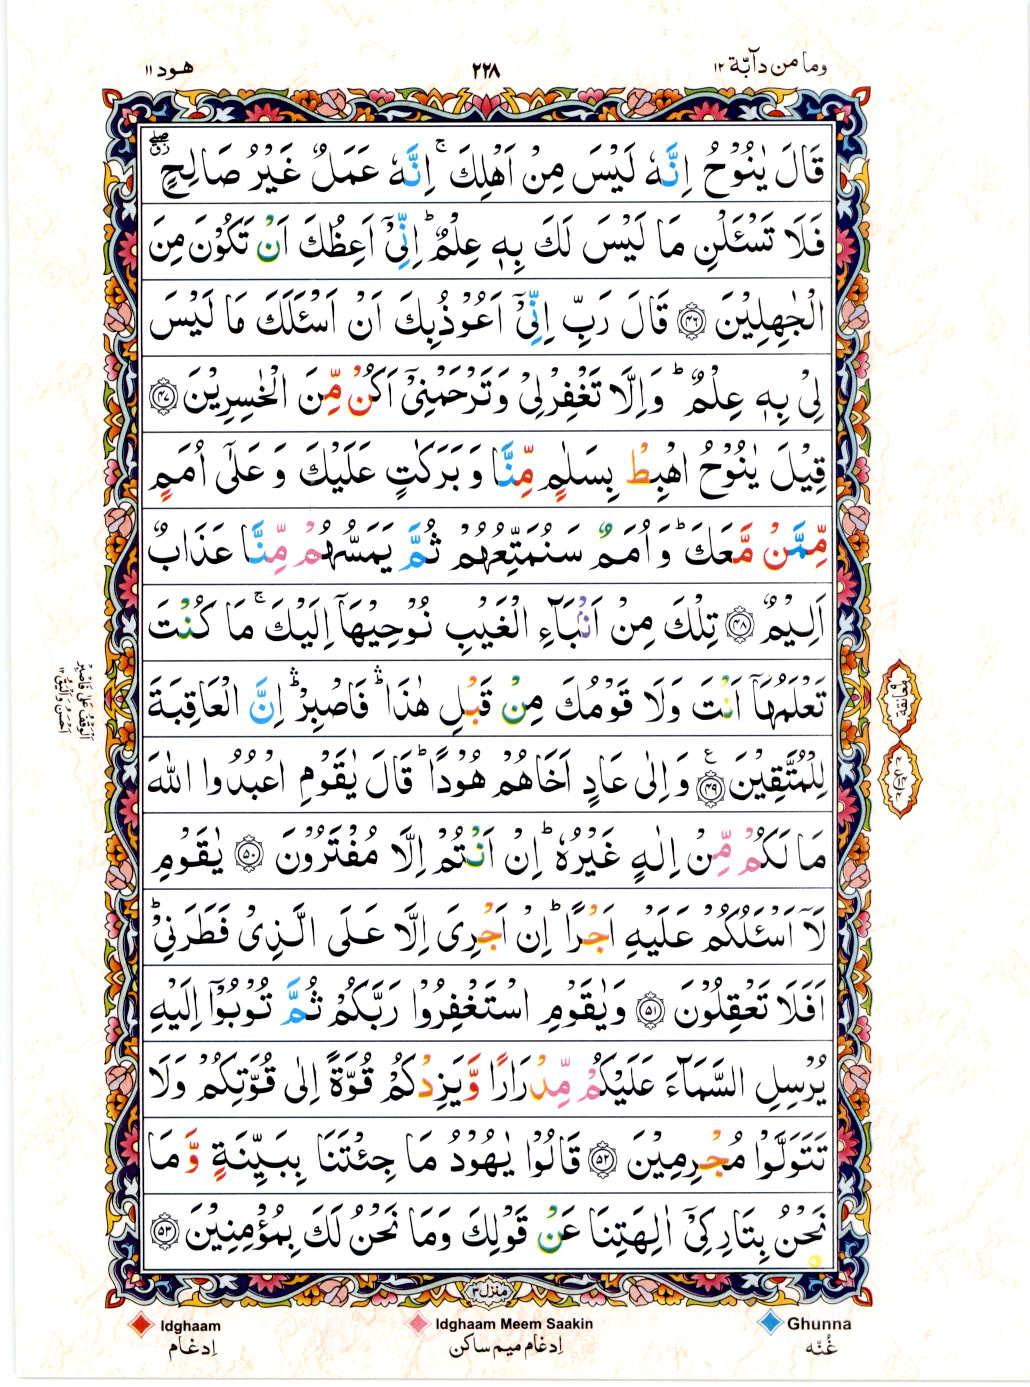 وما من دآبّة ۱۲
۲۲۸
هود ۱۱
قَالَ يٰنُوْحُ اِنَّهٗ لَيْسَ مِنْ اَهْلِكَ ۚ اِنَّهٗ عَمَلٌ غَيْرُ صَالِحٍ
فَلَا تَسْـَٔلْنِ مَا لَيْسَ لَكَ بِهٖ عِلْمٌ ؕ اِنِّيْۤ اَعِظُكَ اَنْ تَكُوْنَ مِنَ
الْجٰهِلِيْنَ ۴۶ قَالَ رَبِّ اِنِّيْۤ اَعُوْذُ بِكَ اَنْ اَسْـَٔلَكَ مَا لَيْسَ
لِيْ بِهٖ عِلْمٌ ؕ وَاِلَّا تَغْفِرْ لِيْ وَتَرْحَمْنِيْۤ اَكُنْ مِّنَ الْخٰسِرِيْنَ ۴۷
قِيْلَ يٰنُوْحُ اهْبِطْ بِسَلٰمٍ مِّنَّا وَ بَرَكٰتٍ عَلَيْكَ وَ عَلٰۤى اُمَمٍ
مِّمَّنْ مَّعَكَ ؕ وَ اُمَمٌ سَنُمَتِّعُهُمْ ثُمَّ يَمَسُّهُمْ مِّنَّا عَذَابٌ
اَلِيْمٌ ۴۸ تِلْكَ مِنْ اَنْۢبَآءِ الْغَيْبِ نُوْحِيْهَاۤ اِلَيْكَ ۚ مَا كُنْتَ
تَعْلَمُهَاۤ اَنْتَ وَلَا قَوْمُكَ مِنْ قَبْلِ هٰذَا ۛؕ فَاصْبِرْ ۛؕ اِنَّ الْعَاقِبَةَ
لِلْمُتَّقِيْنَ ۴۹ ع وَ اِلٰى عَادٍ اَخَاهُمْ هُوْدًا ؕ قَالَ يٰقَوْمِ اعْبُدُوا اللّٰهَ
مَا لَكُمْ مِّنْ اِلٰهٍ غَيْرُهٗ ؕ اِنْ اَنْتُمْ اِلَّا مُفْتَرُوْنَ ۵۰ يٰقَوْمِ
لَاۤ اَسْـَٔلُكُمْ عَلَيْهِ اَجْرًا ؕ اِنْ اَجْرِيَ اِلَّا عَلَى الَّذِيْ فَطَرَنِيْ ؕ
اَفَلَا تَعْقِلُوْنَ ۵۱ وَيٰقَوْمِ اسْتَغْفِرُوْا رَبَّكُمْ ثُمَّ تُوْبُوْۤا اِلَيْهِ
يُرْسِلِ السَّمَآءَ عَلَيْكُمْ مِّدْرَارًا وَّيَزِدْكُمْ قُوَّةً اِلٰى قُوَّتِكُمْ وَلَا
تَتَوَلَّوْا مُجْرِمِيْنَ ۵۲ قَالُوْا يٰهُوْدُ مَا جِئْتَنَا بِبَيِّنَةٍ وَّ مَا
نَحْنُ بِتَارِكِيْۤ اٰلِهَتِنَا عَنْ قَوْلِكَ وَمَا نَحْنُ لَكَ بِمُؤْمِنِيْنَ ۵۳
منزل ۳
Ghunna
غُنّه
Idghaam Meem Saakin
اِدغام میم ساکن
Idghaam
اِدغام